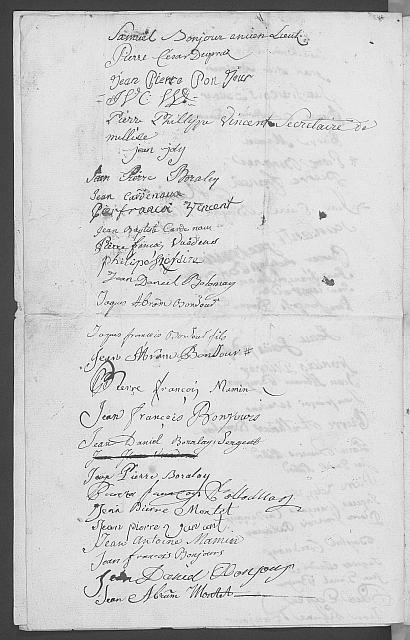 Samuel Bonjour ancien Lieut.
Pierre Cesar
Jean Pierre Bon Jour
Pierre Phillippe Vincent Secretaire de
millisse
jean joly
Jean Pierre Boralay
Jean Cardenaux
Pierfrancoi Vincent
Jean Baptiste Cardenaux
Pierre francois
philipe
Jean Daniel Bolomay
Jaques Abram Bondour
Jaques francois Bondour fils
Jean Abram Bondour
Pierre francois Mamin
Jean françois Bonjours
Jean Daniel Boralay Sergent
Jean Pierre Boralay
Pierre francois
Jean Pierre Montet
jean pierre vincent
Jean Antoine Mamin
Jean francois Bonjours
Jean David Bonjour
Jean Abram Montet